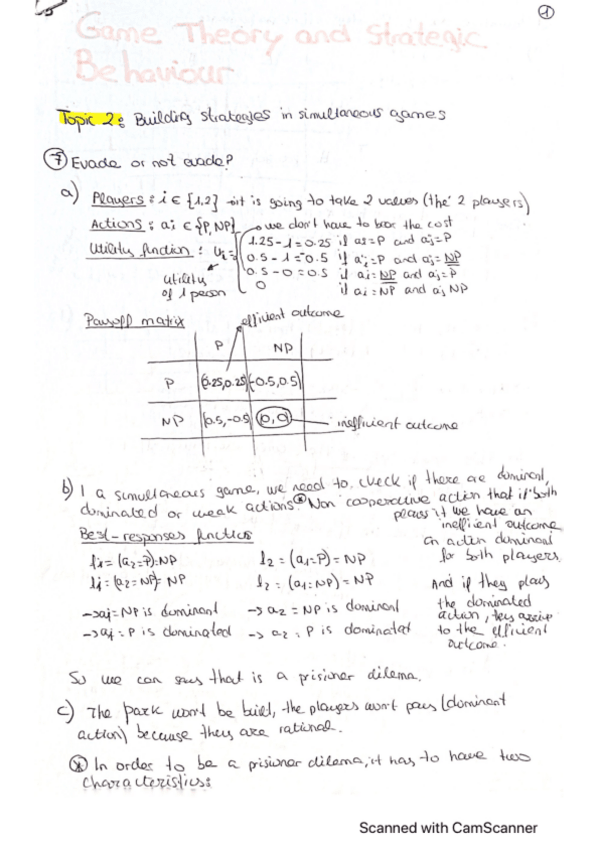 1
Game Theory and Strategic
Behaviour
Topic 2: Building strategies in simultaneous games
7 Evade or not evade?
a) Players: i ∈ {1,2} → it is going to take 2 values (the 2 players)
Actions: ai ∈ {P, NP} → we don't have to the cost
Utility function: Ui =
1.25-1=0.25 if ai=P and aj=P
0.5-1=-0.5 if ai=P and aj=NP
0.5-0=0.5 if ai=NP and aj=P
0 if ai=NP and aj NP
utility
of 1 person
Payoff matrix
efficient outcome
P NP
P (0.25,0.25) (-0.5,0.5)
NP (0.5,-0.5) (0,0) inefficient outcome
b) I a simultaneous game, we need to check if there are dominent,
dominated or weak actions. * Non cooperative action that if both
plays it we have an
inefficient outcome
Best-responses function
an action dominant
for both players.
(a2=P)=NP (a1=P)=NP
(a2=NP)=NP (a1=NP)=NP
And if they play
the dominated
action, they arrive
to the efficient
outcome.
NP is dominant → a2=NP is dominent
P is dominated → a2=P is dominated
So we can say that is a prisioner dilema.
c) The park won't be build, the players won't pay (dominant
action) because they are rational.
* In order to be a prisioner dilema, it has to have two
characteristics:
Scanned with CamScanner